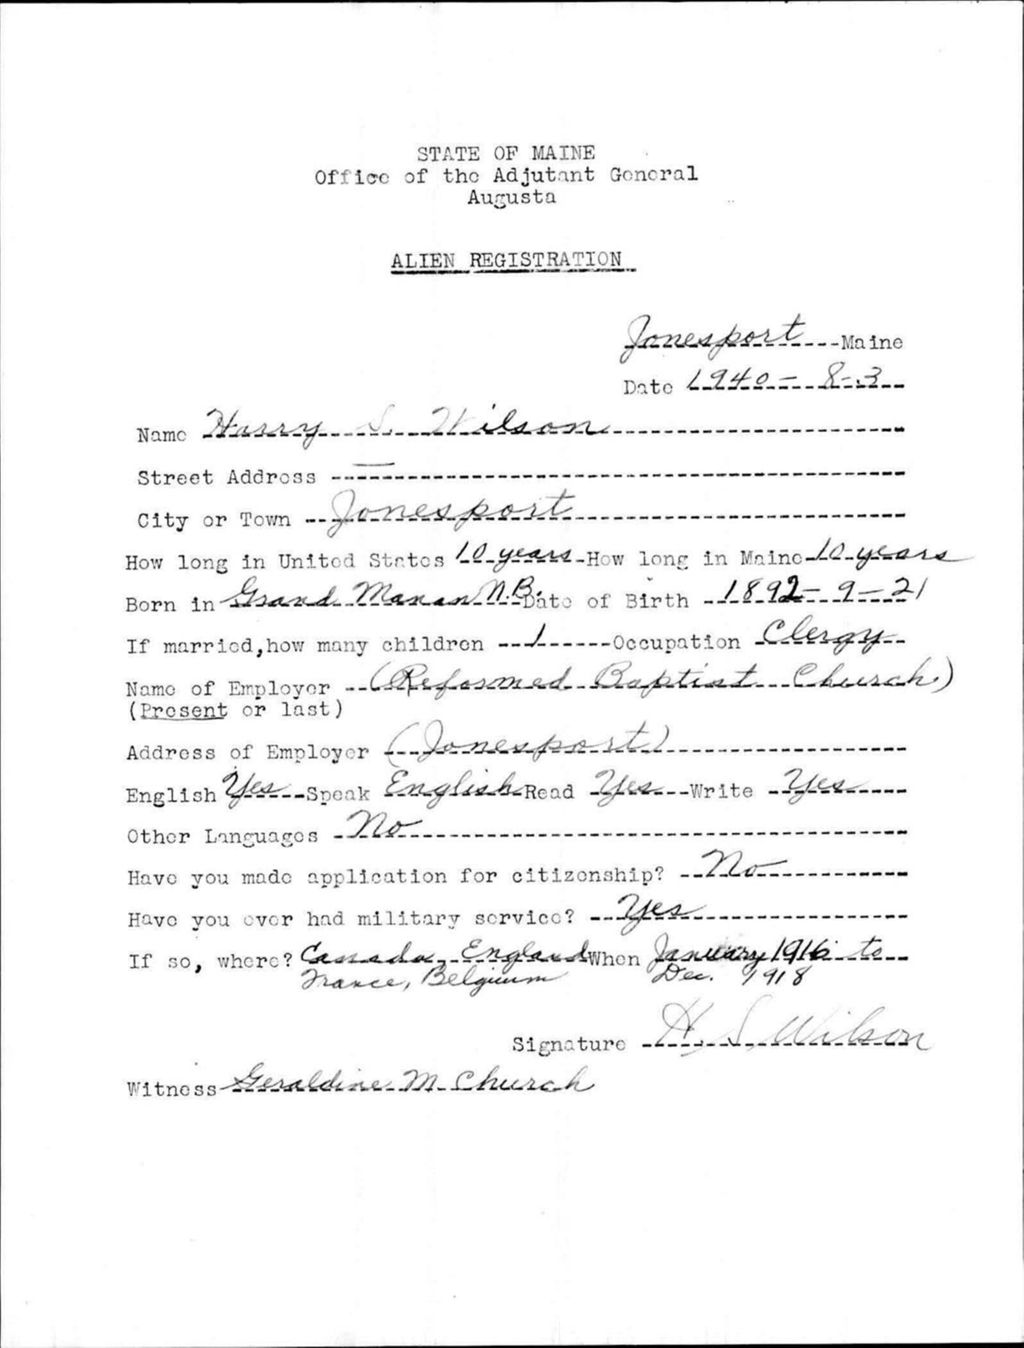 STATE OF MAINE
Office of the Adjutant General
Augusta
ALIEN REGISTRATION
Jonesport Maine
Date 1940-8-3
Name Harry S. Wilson
Street Address —
City or Town Jonesport
How long in United States 10 years How long in Maine 10 years
Born in Grand Manan N.B. Date of Birth 1892-9-21
If married, how many children 1 Occupation Clergy
Name of Employer (Reformed Baptist Church)
(Present or last)
Address of Employer (Jonesport)
English Yes Speak English Read Yes Write Yes
Other Languages No
Have you made application for citizenship? No
Have you ever had military service? Yes
If so, where? Canada, England When January 1916 to
France, Belgium Dec. 1918
Signature H. S. Wilson
Witness Geraldine M. Church